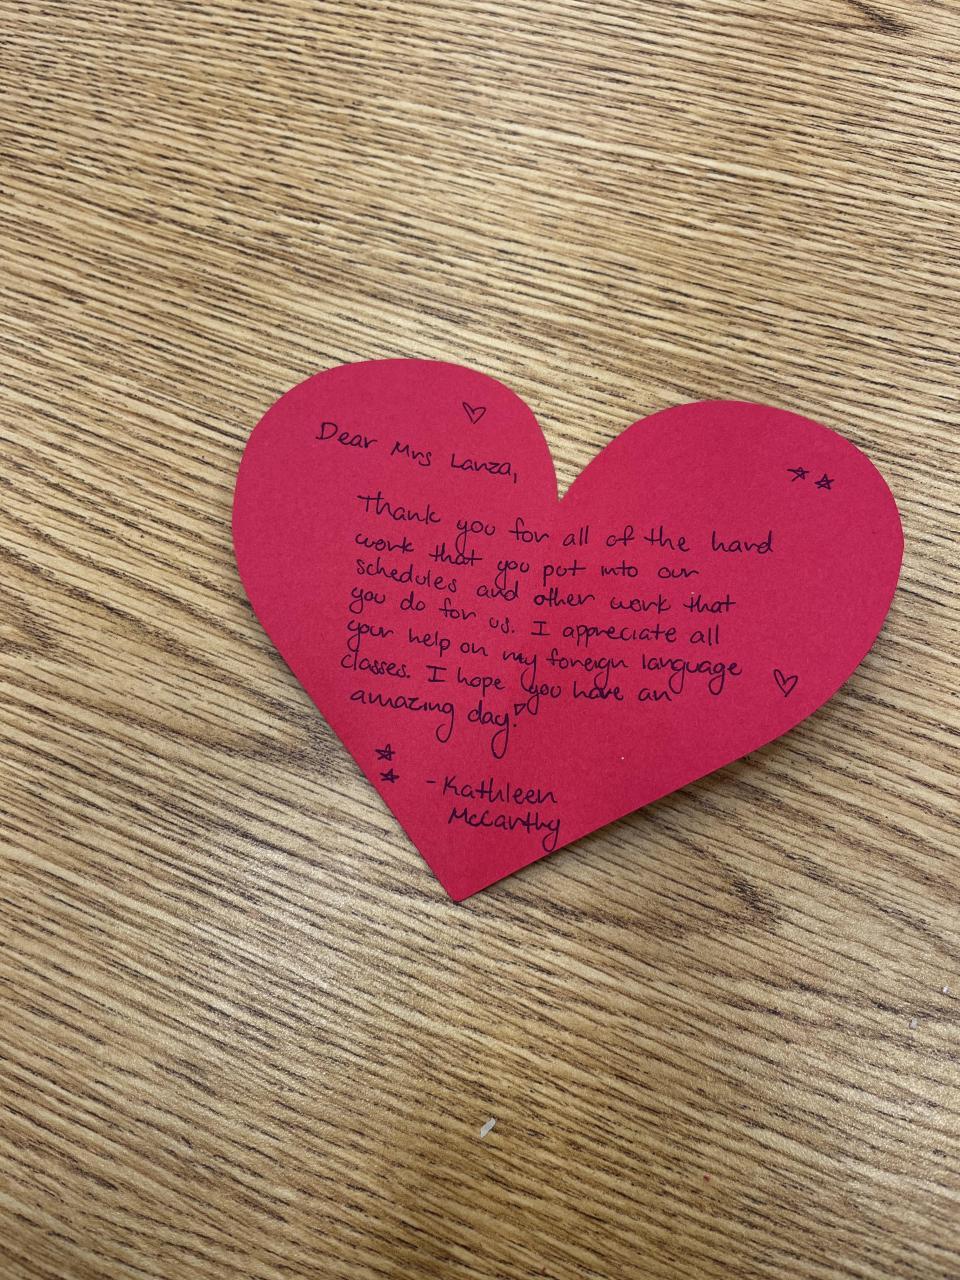 Dear Mrs Lanza,
Thank you for all of the hard
work that you put into our
schedules and other work that
you do for us. I appreciate all
your help on my foreign language
classes. I hope you have an
amazing day!
- Kathleen
McCarthy